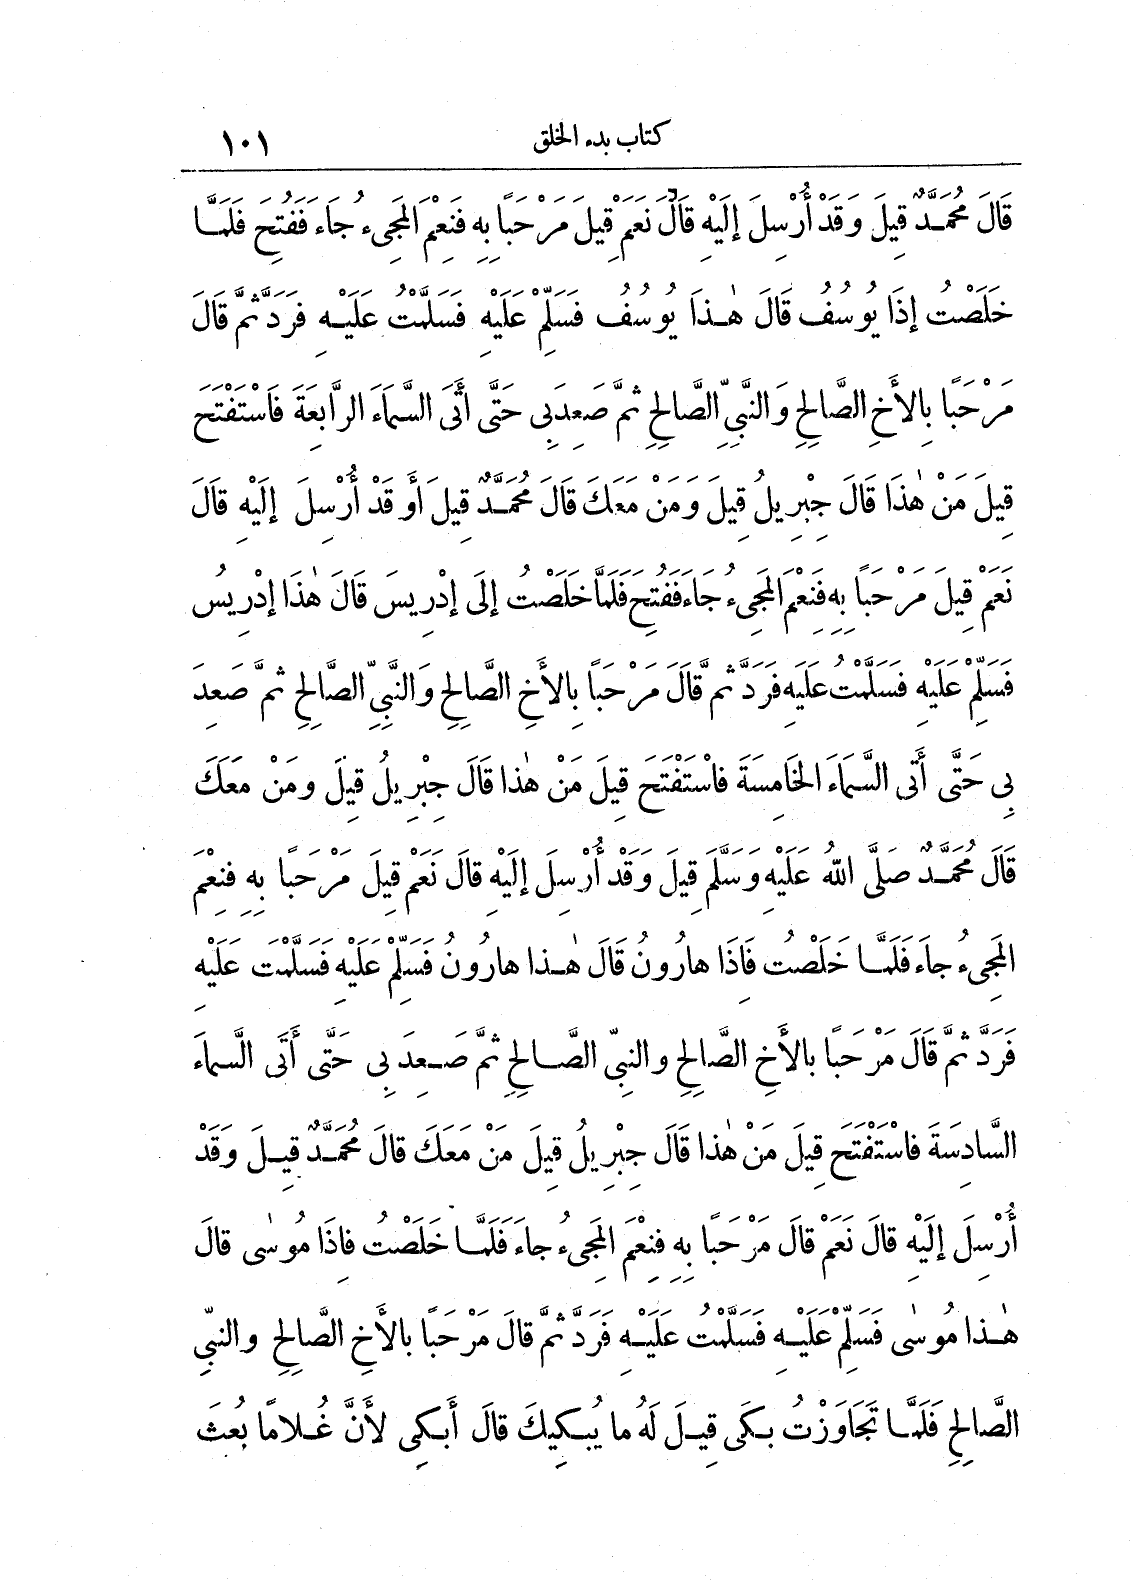 كتاب بدء الخلق ١٠١
قَالَ مُحَمَّدٌ قِيلَ وَقَدْ أُرْسِلَ إِلَيْهِ قَالَ نَعَمْ قِيلَ مَرْحَبًا بِهِ فَنِعْمَ الْمَجِيءُ جَاءَ فَفُتِحَ فَلَمَّا
خَلَصْتُ إِذَا يُوسُفُ قَالَ هٰذَا يُوسُفُ فَسَلِّمْ عَلَيْهِ فَسَلَّمْتُ عَلَيْهِ فَرَدَّ ثُمَّ قَالَ
مَرْحَبًا بِالأَخِ الصَّالِحِ وَالنَّبِيِّ الصَّالِحِ ثُمَّ صَعِدَ بِي حَتَّى أَتَى السَّمَاءَ الرَّابِعَةَ فَاسْتَفْتَحَ
قِيلَ مَنْ هٰذَا قَالَ جِبْرِيلُ قِيلَ وَمَنْ مَعَكَ قَالَ مُحَمَّدٌ قِيلَ أَوَ قَدْ أُرْسِلَ إِلَيْهِ قَالَ
نَعَمْ قِيلَ مَرْحَبًا بِهِ فَنِعْمَ الْمَجِيءُ جَاءَ فَفُتِحَ فَلَمَّا خَلَصْتُ إِلَى إِدْرِيسَ قَالَ هٰذَا إِدْرِيسُ
فَسَلِّمْ عَلَيْهِ فَسَلَّمْتُ عَلَيْهِ فَرَدَّ ثُمَّ قَالَ مَرْحَبًا بِالأَخِ الصَّالِحِ وَالنَّبِيِّ الصَّالِحِ ثُمَّ صَعِدَ
بِي حَتَّى أَتَى السَّمَاءَ الخَامِسَةَ فَاسْتَفْتَحَ قِيلَ مَنْ هٰذَا قَالَ جِبْرِيلُ قِيلَ وَمَنْ مَعَكَ
قَالَ مُحَمَّدٌ صَلَّى اللهُ عَلَيْهِ وَسَلَّمَ قِيلَ وَقَدْ أُرْسِلَ إِلَيْهِ قَالَ نَعَمْ قِيلَ مَرْحَبًا بِهِ فَنِعْمَ
الْمَجِيءُ جَاءَ فَلَمَّا خَلَصْتُ فَإِذَا هَارُونُ قَالَ هٰذَا هَارُونُ فَسَلِّمْ عَلَيْهِ فَسَلَّمْتُ عَلَيْهِ
فَرَدَّ ثُمَّ قَالَ مَرْحَبًا بِالأَخِ الصَّالِحِ وَالنَّبِيِّ الصَّالِحِ ثُمَّ صَعِدَ بِي حَتَّى أَتَى السَّمَاءَ
السَّادِسَةَ فَاسْتَفْتَحَ قِيلَ مَنْ هٰذَا قَالَ جِبْرِيلُ قِيلَ مَنْ مَعَكَ قَالَ مُحَمَّدٌ قِيلَ وَقَدْ
أُرْسِلَ إِلَيْهِ قَالَ نَعَمْ قَالَ مَرْحَبًا بِهِ فَنِعْمَ الْمَجِيءُ جَاءَ فَلَمَّا خَلَصْتُ فَإِذَا مُوسٰى قَالَ
هٰذَا مُوسٰى فَسَلِّمْ عَلَيْهِ فَسَلَّمْتُ عَلَيْهِ فَرَدَّ ثُمَّ قَالَ مَرْحَبًا بِالأَخِ الصَّالِحِ وَالنَّبِيِّ
الصَّالِحِ فَلَمَّا تَجَاوَزْتُ بَكَى قِيلَ لَهُ مَا يُبْكِيكَ قَالَ أَبْكِي لأَنَّ غُلَامًا بُعِثَ